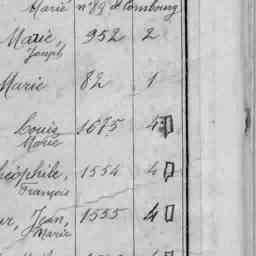 Marie n° 89 de Combourg
Marie, 952 2
Joseph
Marie 82 1
Louis 1675 4
Marie
Théophile, 1554 4
François
Jean, 1555 4
Marie